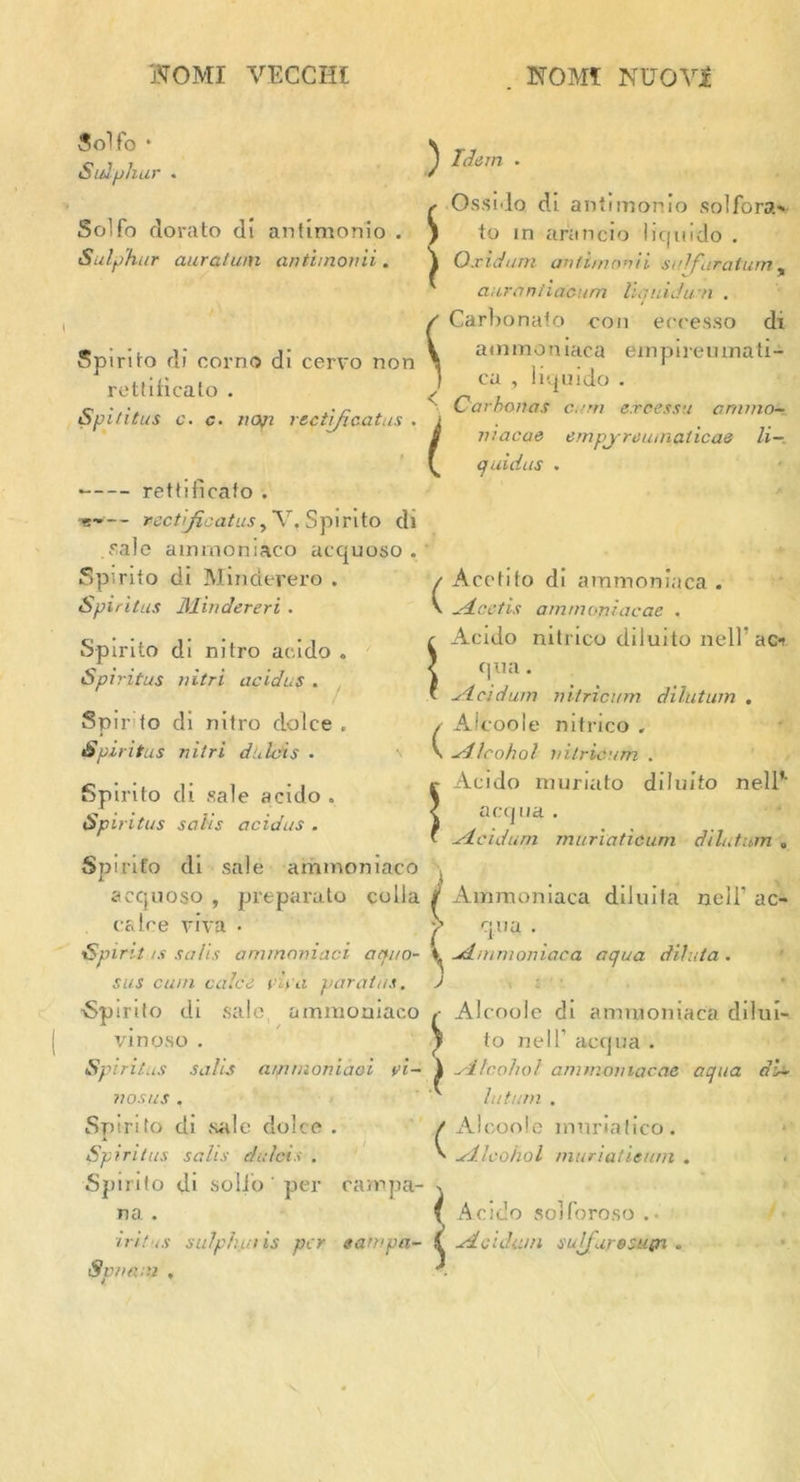 NOMI VECCHI
Solfo .
Sulphur .
Solfo dorato di antimonio .
Sulphur auratum antimonii .
Spirito di corno di cervo non
rettificato .
Spititus c. c. non rectificatus .
---- rettificato .
---- rectificatus, V. Spirito di
sale ammoniaco acquoso .
Spirito di Minderero .
Spiritus Mindereri .
Spirito di nitro acido .
Spiritus nitri acidus .
Spirito di nitro dolce .
Spiritus nitri dulcis .
Spirito di sale acido .
Spiritus salis acidus .
Spirito di sale ammoniaco
acquoso , preparato colla
calce viva .
Spirit is salis ammoniaci aquo-
sus cum calce viva paratus.
Spirito di sale ammoniaco
vinoso .
Spiritus salis ammoniaci vi-
nosus .
Spirito di sale dolce .
Spiritus salis dulcis .
Spirito di solfo per campa-
na .
iritus sulphuris per campa-
Spnam .
NOMI NUOVI
Idem .
Ossido di antimonio solfora-
to in arancio liquido .
Oxidum antimonii sulfuratum,
aurantiacum liquidum .
Carbonato con eccesso di
ammoniaca empireumati-
ca , liquido .
Carbonas cum excessu ammo-
niacae empyreumaticae li-
quidus .
Acetito di ammoniaca .
Acetis ammoniacae .
Acido nitrico diluito nell' ac-
qua .
Acidum nitricum dilutum .
Alcoole nitrico .
Alcohol nitricum .
Acido muriato diluito nell'
acqua .
Acidum muriaticum dilutum .
Ammoniaca diluita nell' ac-
qua .
Ammoniaca aqua diluta .
Alcoole di ammoniaca dilui-
to nell' acqua .
Alcohol ammoniacae aqua di-
lutum .
Alcoole muriatico .
Alcohol muriaticum .
Acido solforoso .
Acidum sulfurosum .